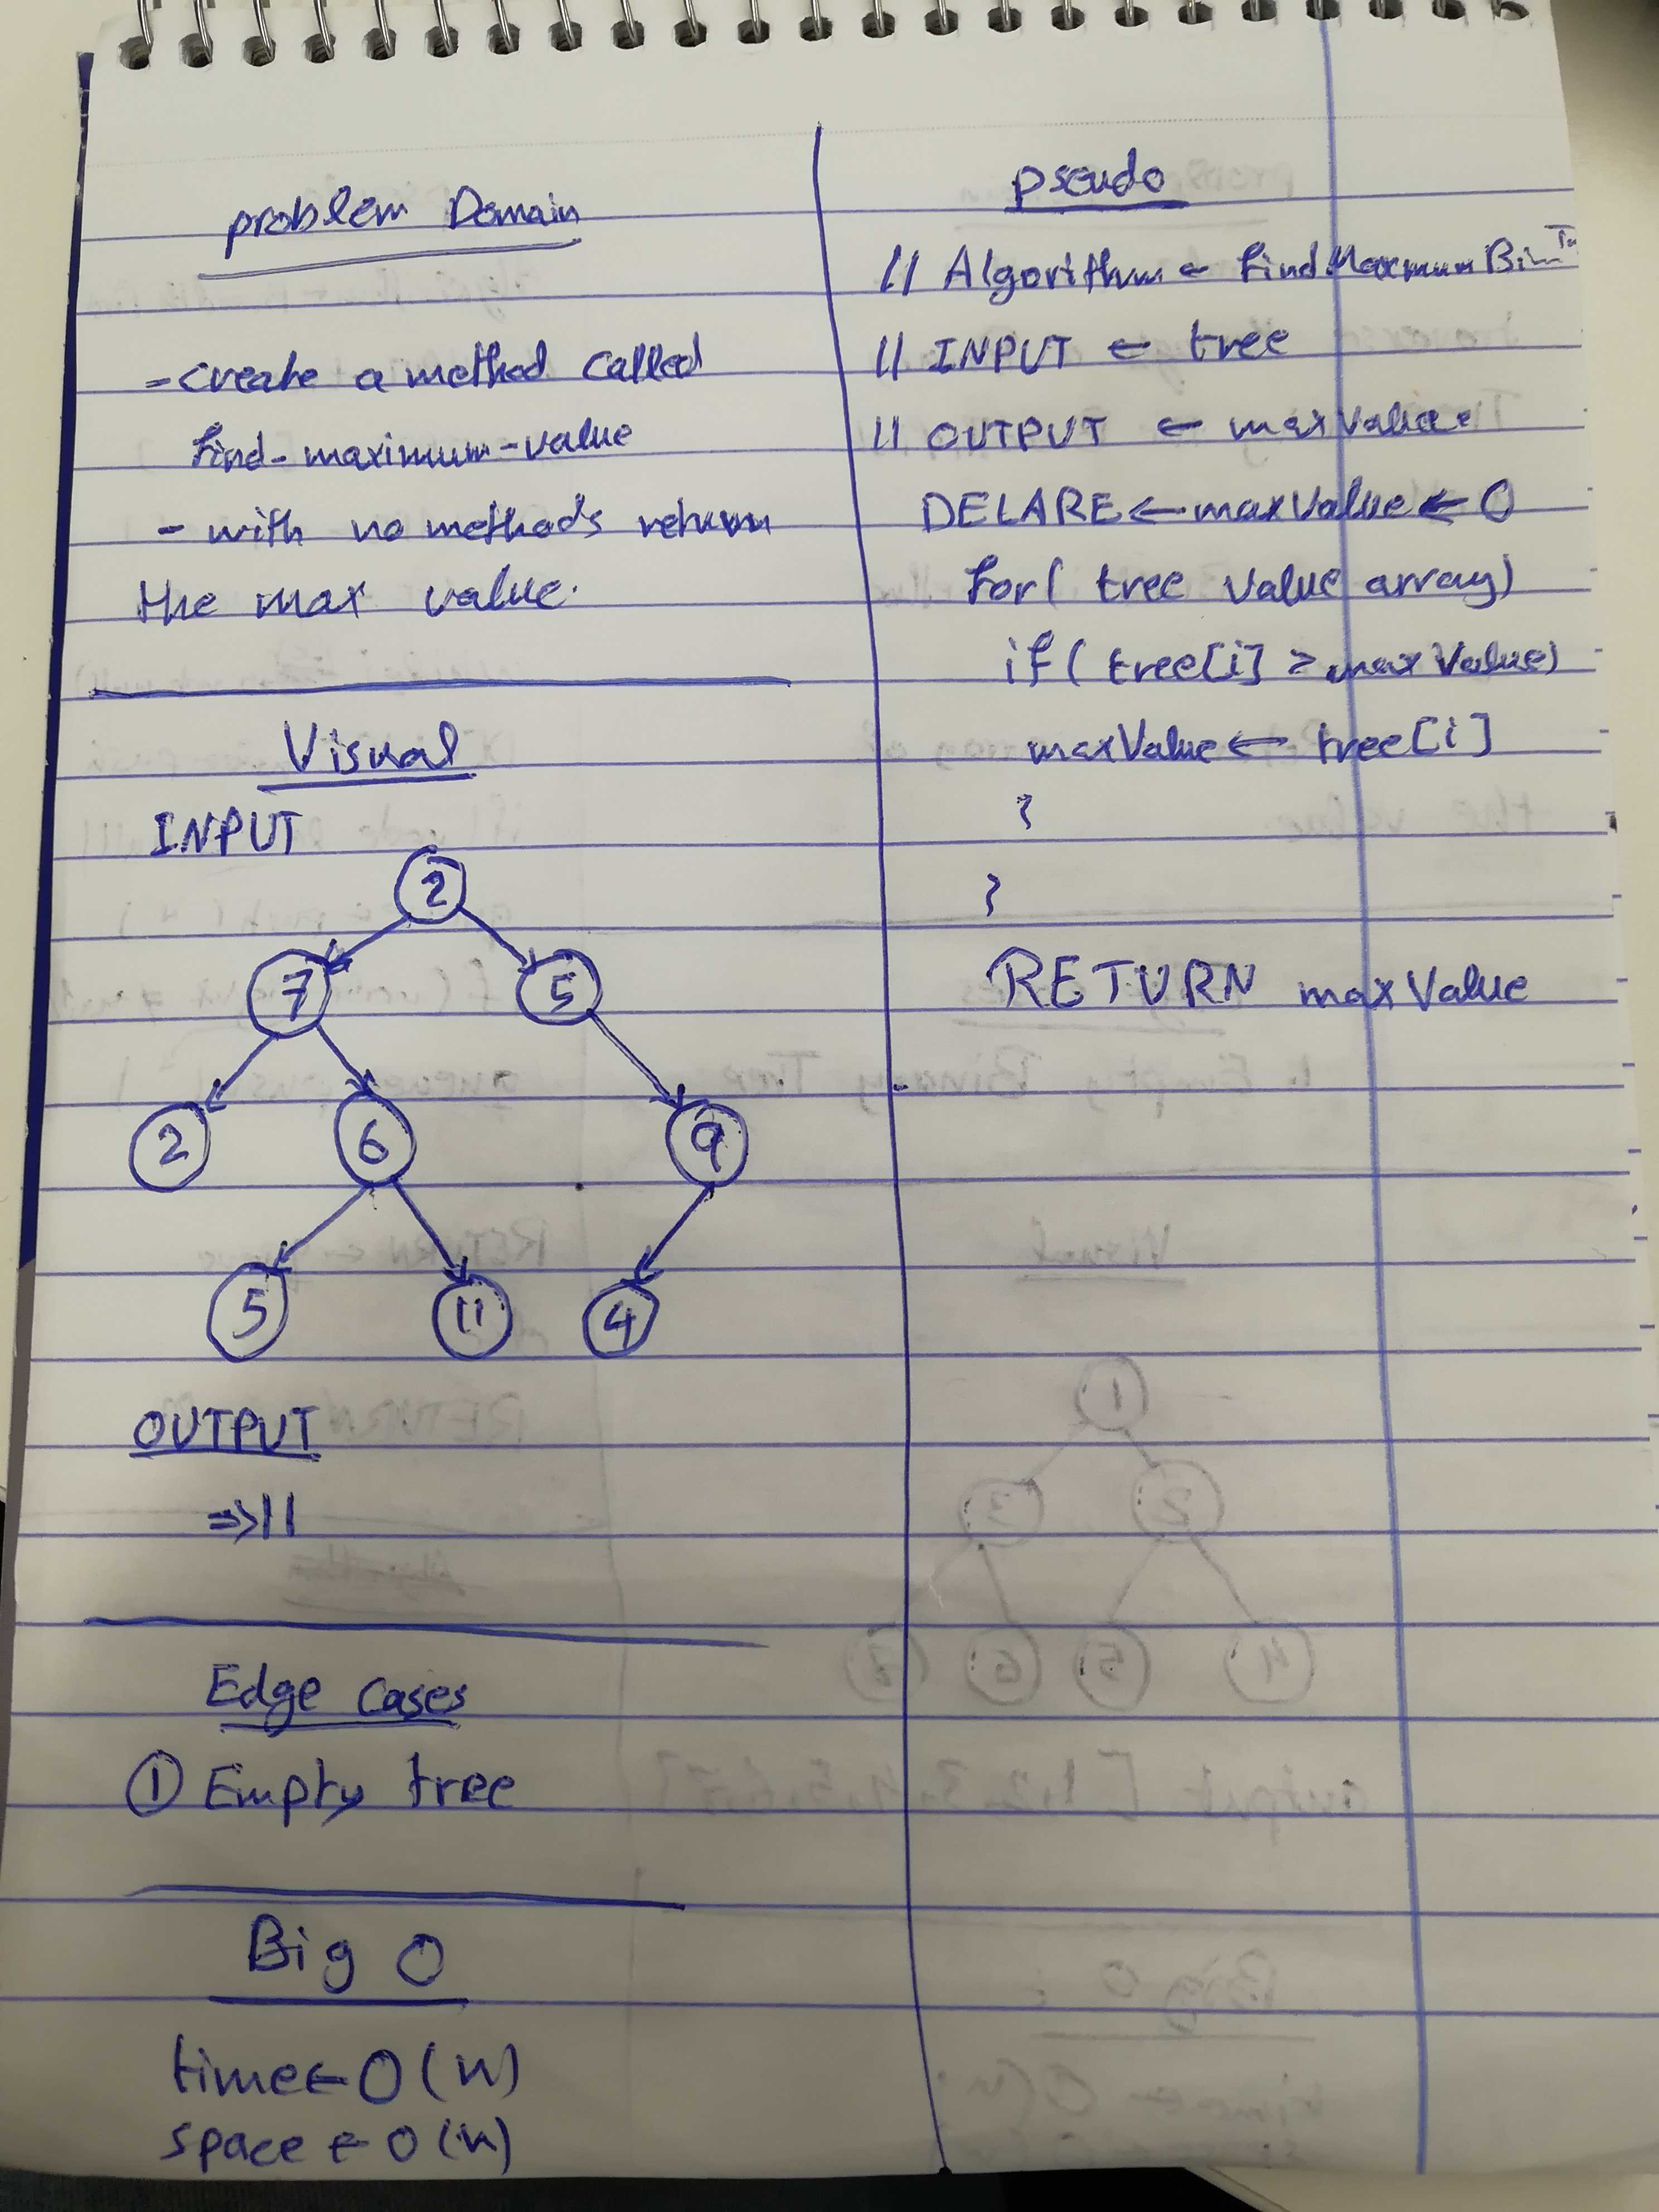 problem Domain
- create a method called
find-maximum-value
- with no methods return
the max value.
Visual
INPUT
2
7 5
2 6 9
5 11 4
OUTPUT
=>11
Edge Cases
① Empty tree
Big O
time← O(n)
space ← O(n)
pseudo
// Algorithm ← find Maxmum
// INPUT ← tree
// OUTPUT ← maxValue
DELARE ← maxValue ← 0
for( tree value array)
if( tree[i] > maxValue)
maxValue ← tree[i]
}
}
RETURN maxValue